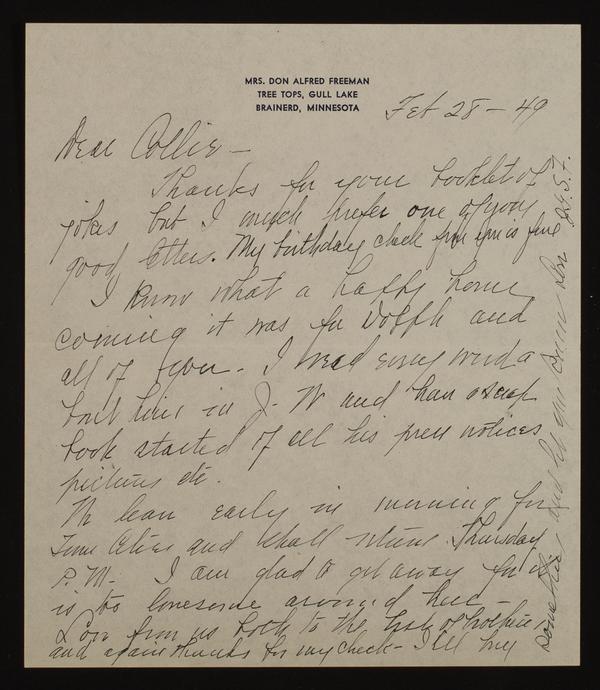 MRS. DON ALFRED FREEMAN
TREE TOPS, GULL LAKE
BRAINERD, MINNESOTA
Feb 28 - 49
Dear Collie -
Thanks for your booklet of
jokes but I much prefer one of your
good letters. My birthday check from you is fine
I know what a happy home
coming it was for Dolph and
all of you - I read every word a-
bout him in J- N and have a scrap
book started of all his press notices
pictures etc.
We leave early in morning for
and shall return Thursday
P. M. I am glad to get away for it
is so lonesome around here -
Love from us both to the best of brothers
and again thanks for my check - I'll buy